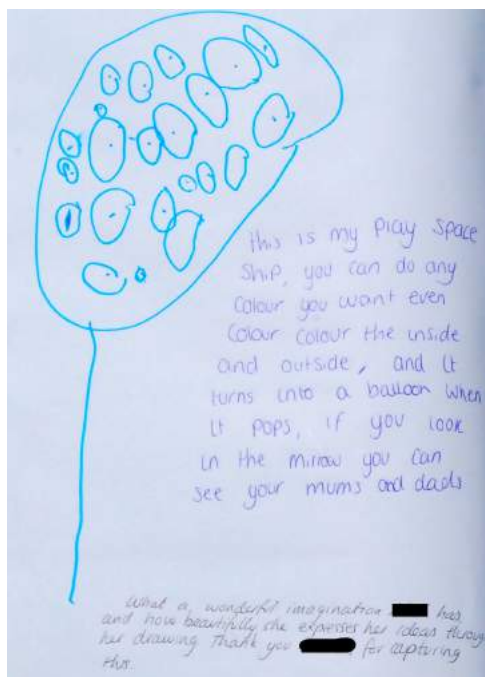 this is my play space
Ship, you can do any
Colour you want even
Colour colour the inside
and outside, and it
turns into a balloon when
it pops, if you look
in the mirrow you can
see your mums and dads
What a wonderful imagination has
and how beautifully she expresses her ideas through
her drawing. Thank you for capturing
this.